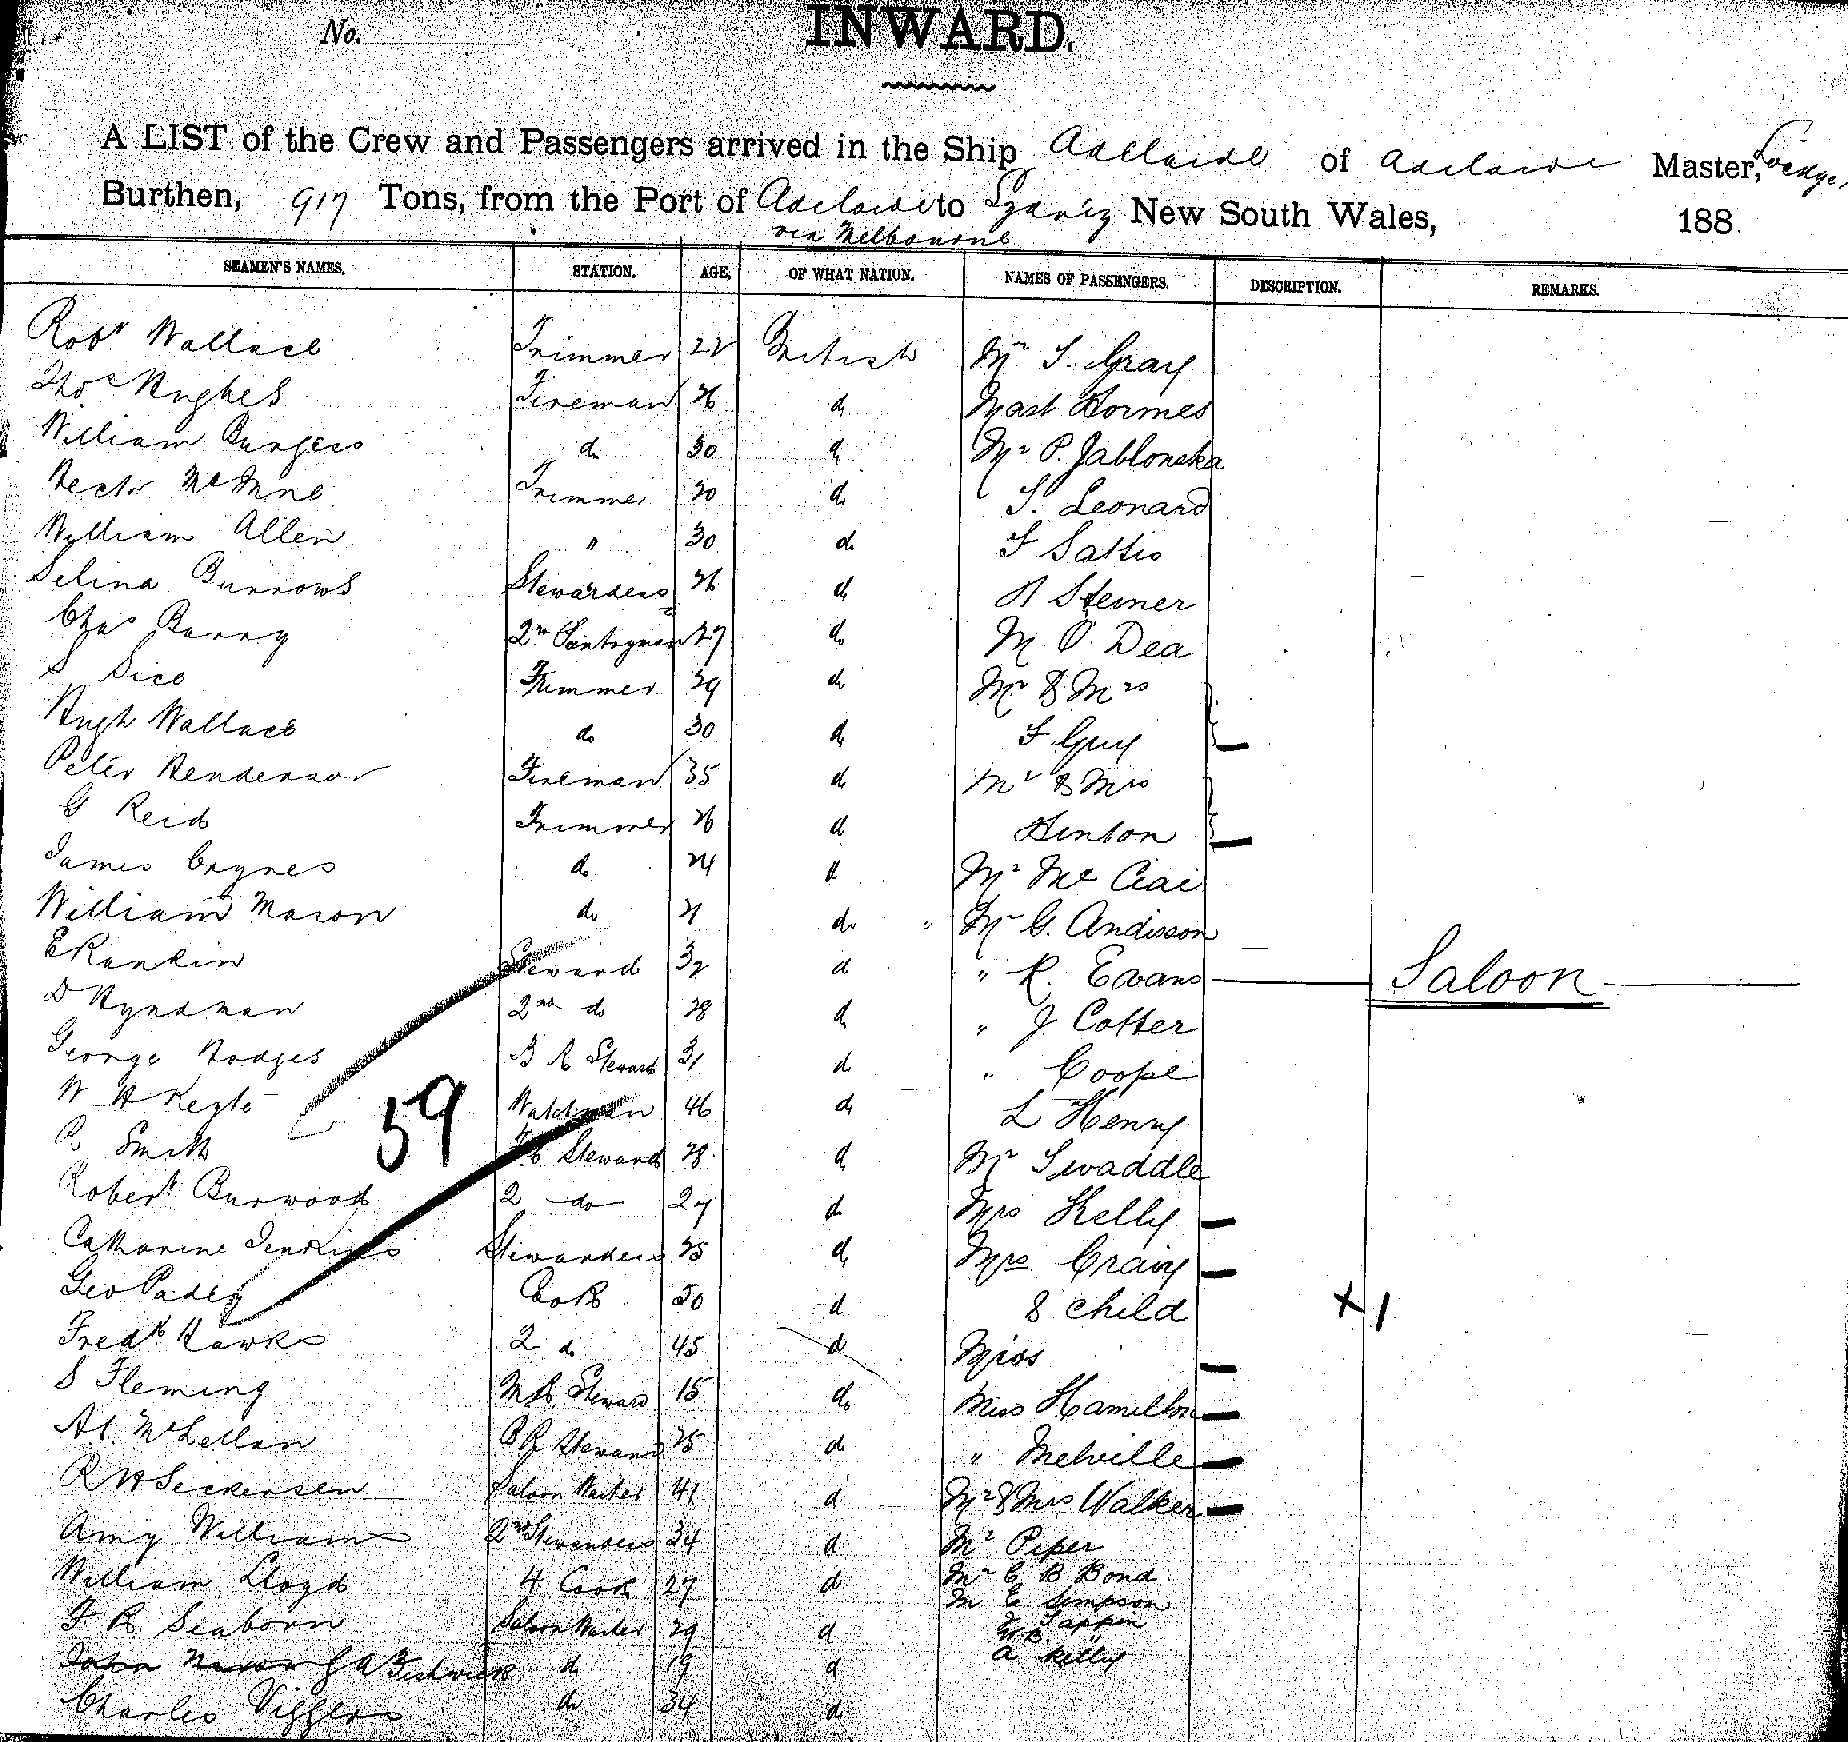 No.
INWARD.
A LIST of the Crew and Passengers arrived in the Ship Adelaide of Adelaide Master,
Burthen, 917 Tons, from the Port of Adelaide to Sydney New South Wales, 188
via Melbourne
SEAMEN'S NAMES. STATION. AGE. OF WHAT NATION. NAMES OF PASSENGERS. DESCRIPTION. REMARKS.
Robt Wallace Trimmer 22 British Mr S. Gray
Thos Hughes Fireman 26 do Mast Hormes
William Burgess do 30 do Mr P. Jablonska
Hector Trimmer 20 do S. Leonard
William Allen " 30 do F
Selina Burrows Stewardess 26 do Steiner
Chas Barry 2nd Pantryman 27 do M O. Dea
S Sice Trimmer 39 do Mr & Mrs
Hugh Wallace do 30 do F Guy
Peter Henderson Fireman 35 do Mr & Mrs
G Reid Trimmer 26 do Hinton
James do 24 do Mr Mc
William Mason do 21 do Mr G. Andisson
E Rankin Steward 32 do " R. Evans Saloon
D Hyndman 2nd do 28 do " J Cotter
George Hodges Steward 31 do " Coope
W H 59 Watchman 46 do L Henry
C Smith Steward 28 do Mr Swaddle
Robert Burwood 2 do 27 do Mrs Kelly
Catharine Jenkins Stewardess 25 do Mrs Craig
Geo Cook 50 do & child x 1
Fredk Hawks 2 do 45 do Miss
S Fleming Steward 15 do Miss Hamilton
McLellan Steward 25 do " Melville
R H Saloon Waiter 41 do Mr & Mrs Walker
Amy Williams 2nd Stewardess 34 do Mr Piper
William Lloyd 4 Cook 27 do Mr C B Bond
M E Simpson
F R Seaborn Saloon Waiter 29 do Tappin
do 19 do A Kelly
Charles do 34 do